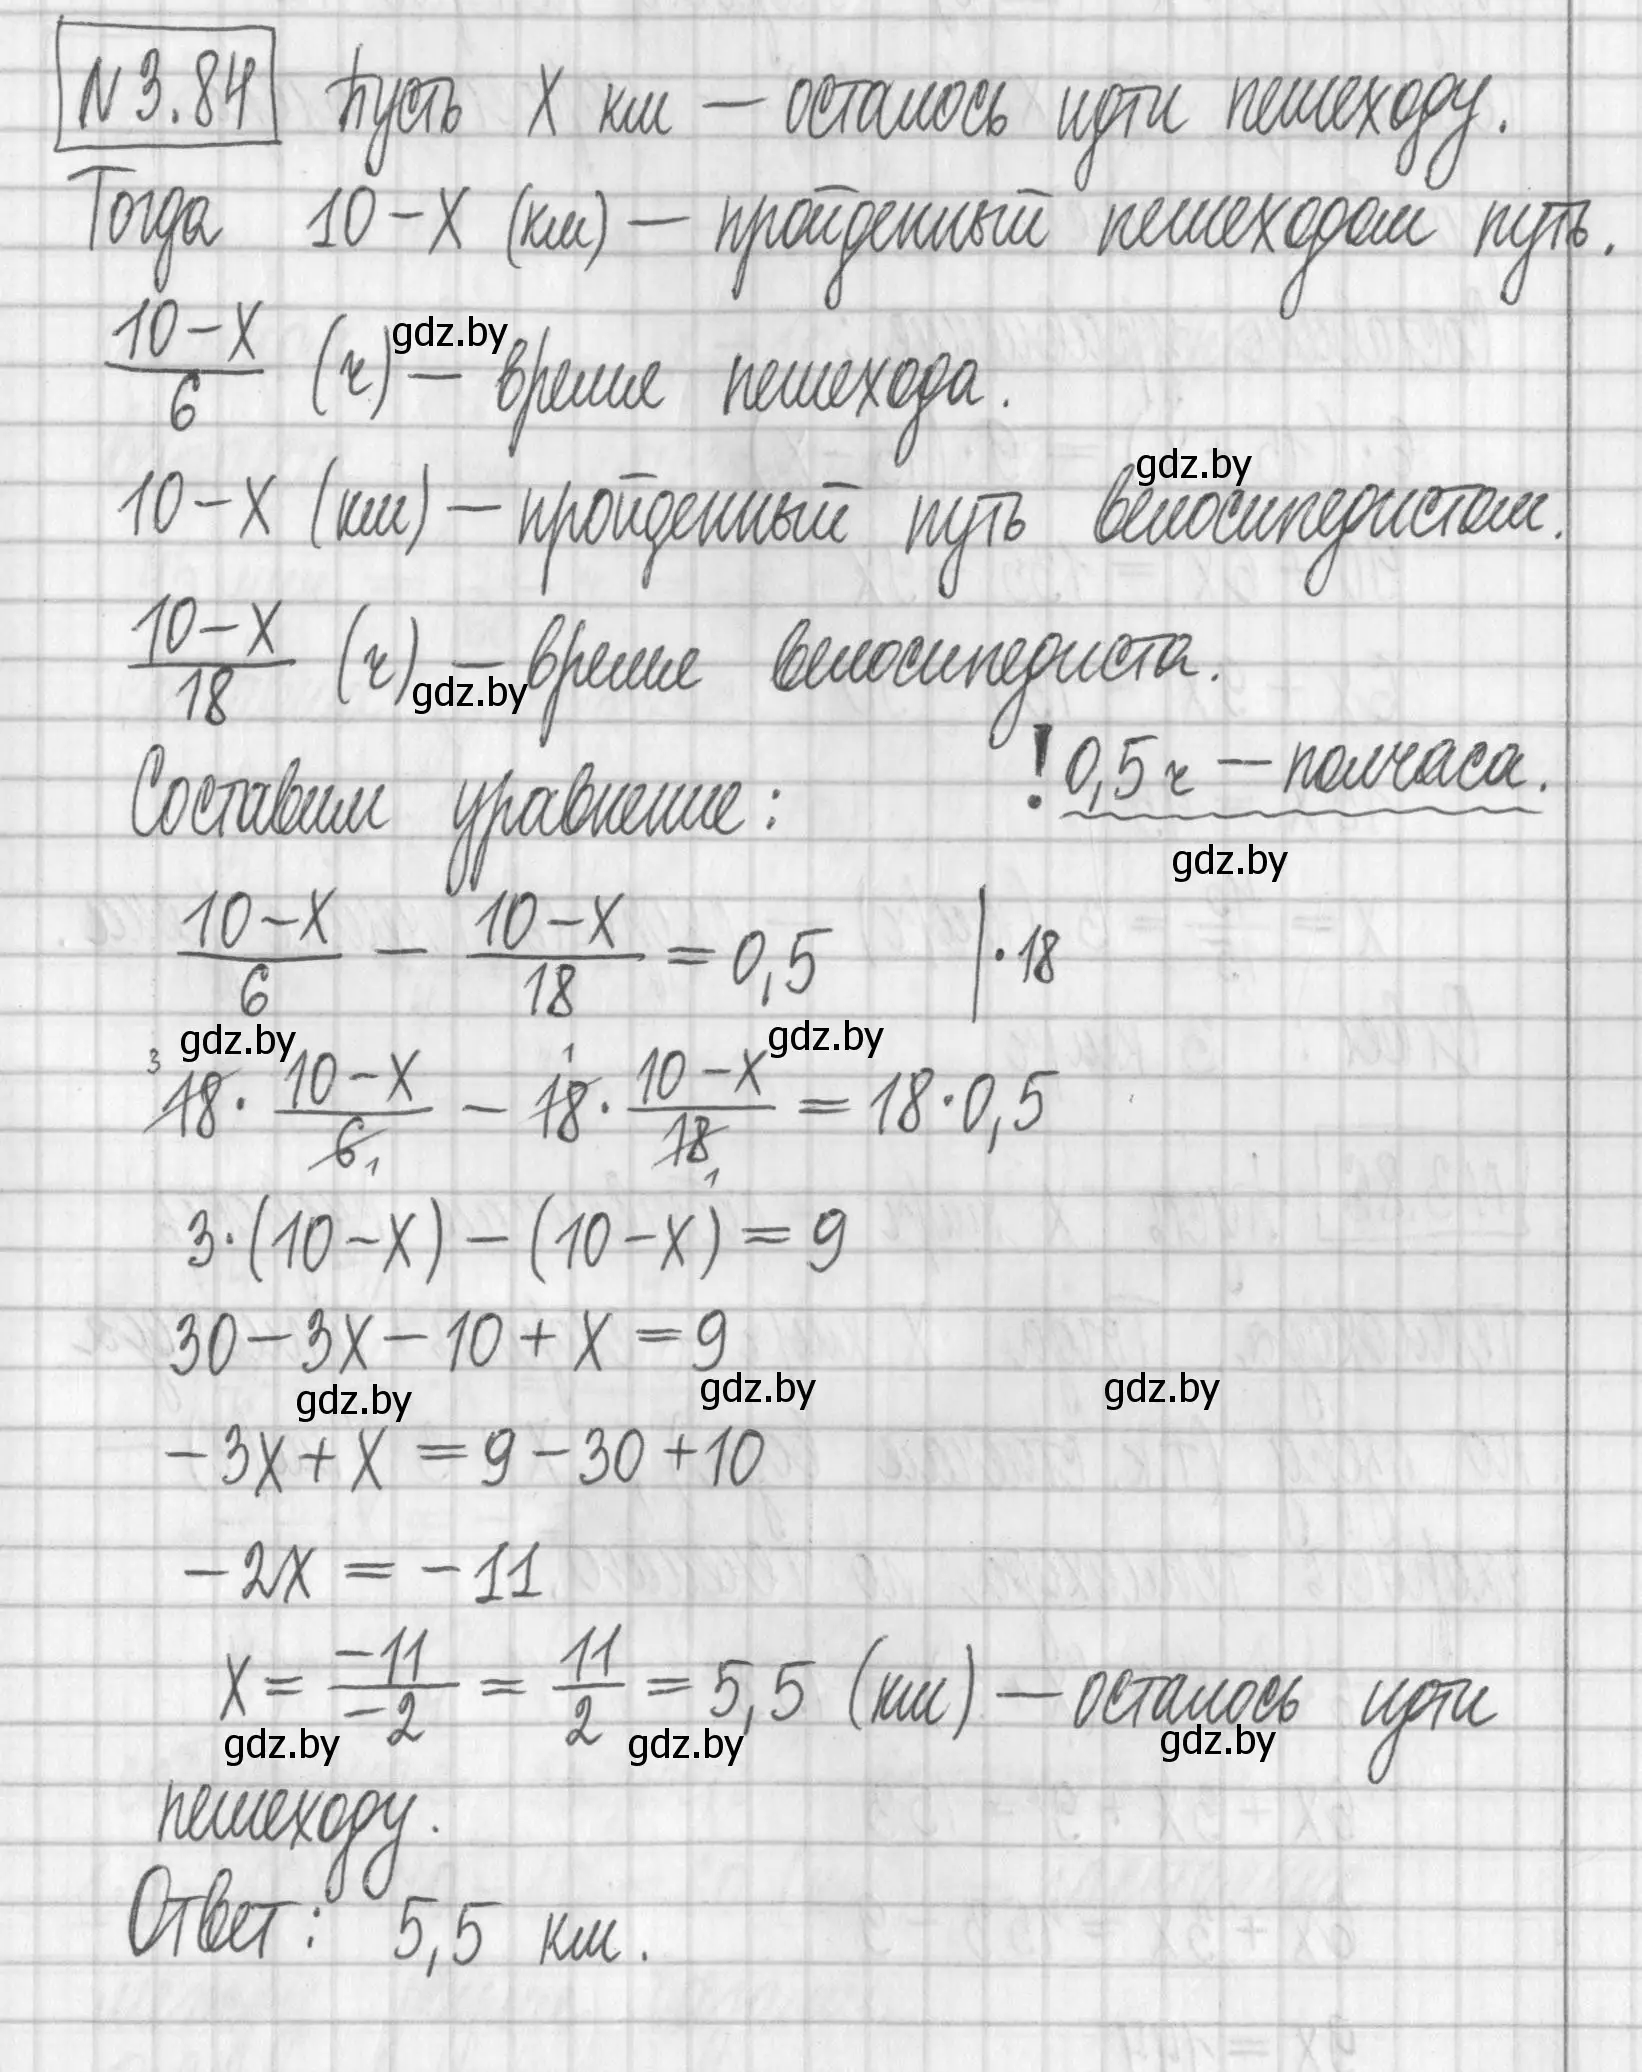 N 3.84 Пусть X км — осталось идти пешеходу.
Тогда 10-X (км) — пройденный пешеходом путь.
(10-X)/6 (ч) — время пешехода.
gdz.by
10-X (км) — пройденный путь велосипедистом.
gdz.by
(10-X)/18 (ч) — время велосипедиста.
gdz.by
Составим уравнение: ! 0,5 ч — полчаса.
gdz.by
(10-X)/6 - (10-X)/18 = 0,5 | ·18
gdz.by gdz.by
3 18 · (10-X)/6 1 - 1 18 · (10-X)/18 1 = 18·0,5
3·(10-X) - (10-X) = 9
30-3X-10+X=9
gdz.by gdz.by gdz.by
-3X+X=9-30+10
-2X=-11
X = -11/-2 = 11/2 = 5,5 (км) — осталось идти
gdz.by gdz.by gdz.by
пешеходу.
Ответ: 5,5 км.